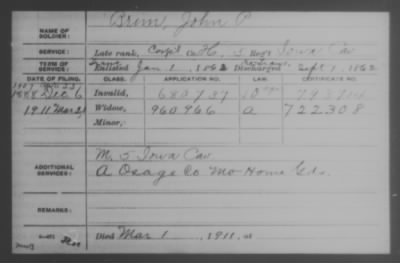 NAME OF SOLDIER: Brim, John P.
SERVICE: Late rank, Corp'l Co. H, 5 Reg't Iowa Cav
TERM OF SERVICE: Enlisted Jan 1, 1862 Discharged Sept 1, 1862
DATE OF FILING. CLASS. APPLICATION NO. LAW. CERTIFICATE NO.
1888 Dec 6 Invalid, 680737
1911 Mar Widow, 960966 a 722308
Minor,
ADDITIONAL SERVICES: M. 5 Iowa Cav
A Osage Co Mo Home Gds.
REMARKS:
Died Mar 1, 1911, at